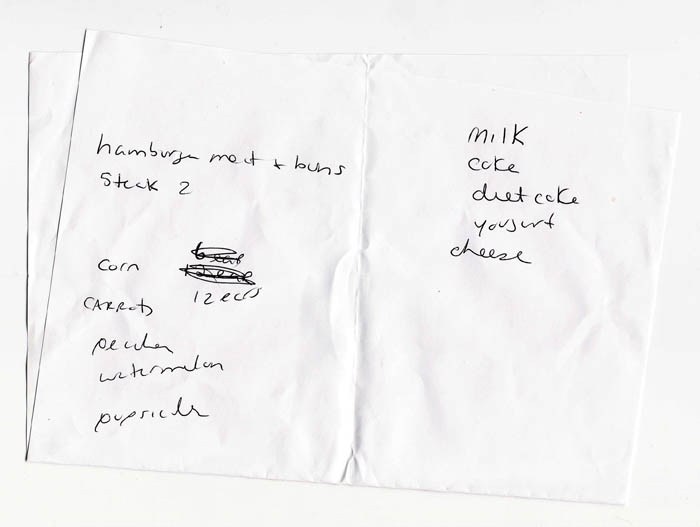 hamburger meat + buns
Steak 2
corn
12 ears
CARROTS
peaches
watermelon
popsicles
milk
coke
diet coke
yougurt
cheese